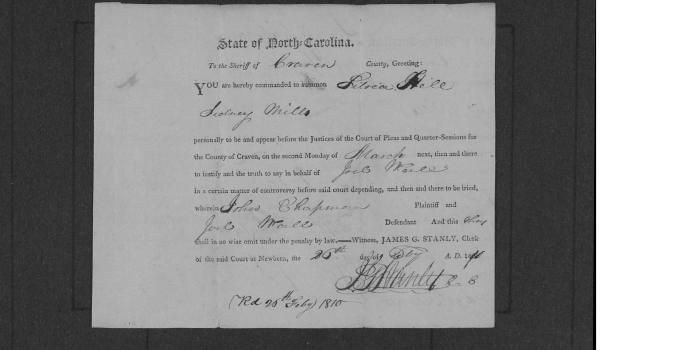 State of North-Carolina.
To the Sheriff of Craven County, Greeting:
YOU are hereby commanded to summon Silvia Hill
Sidney Mills
personally to be and appear before the Justices of the Court of Pleas and Quarter-Sessions for
the County of Craven, on the second Monday of March next, then and there
to testify and the truth to say in behalf of Joel Wails
in a certain matter of controversy before said court depending, and then and there to be tried,
wherein John Chapman Plaintiff and
Joel Wails Defendant And this they
shall in no wise omit under the penalty by law.—Witness, JAMES G. STANLY, Clerk
of the said Court at Newbern, the 26th day of A. D.
J G Stanly
(Rd 26th Feby) 1810